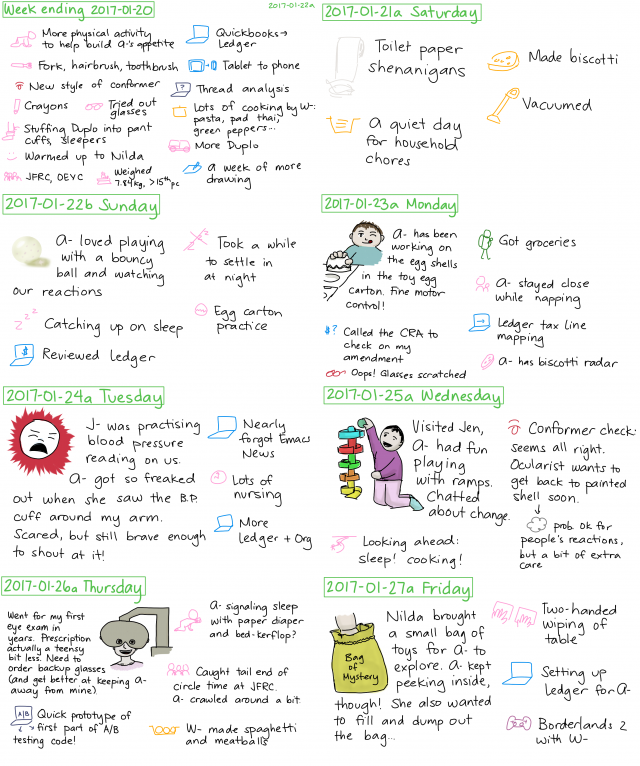 Week ending 2017-01-20
2017-01-22a
More physical activity
to help build A-'s appetite
Fork, hairbrush, toothbrush
New style of conformer
Crayons
Tried out
glasses
Stuffing Duplo into pant
cuffs, sleepers
Warmed up to Nilda
JFRC, OEYC
Weighed
7.84kg, >15th pc
Quickbooks→
Ledger
Tablet to phone
Thread analysis
Lots of cooking by W-:
pasta, pad thai,
green peppers...
More Duplo
A week of more
drawing
2017-01-21a Saturday
Toilet paper
shenanigans
A quiet day
for household
chores
Made biscotti
Vacuumed
2017-01-22b Sunday
A- loved playing
with a bouncy
ball and watching
our reactions
zzz
Catching up on sleep
$
Reviewed ledger
Took a while
to settle in
at night
Egg carton
practice
2017-01-23a Monday
A- has been
working on
the egg shells
in the toy egg
carton. Fine motor
control!
$?
Called the CRA to
check on my
amendment
Oops! Glasses scratched
Got groceries
A- stayed close
while napping
Ledger tax line
mapping
A- has biscotti radar
2017-01-24a Tuesday
J- was practising
blood pressure
reading on us.
A- got so freaked
out when she saw the B.P.
cuff around my arm.
Scared, but still brave enough
to shout at it!
Nearly
forgot Emacs
News
Lots of
nursing
More
Ledger + Org
2017-01-25a Wednesday
Visited Jen,
A- had fun
playing
with ramps.
Chatted
about change.
Looking ahead:
sleep! cooking!
Conformer check:
seems all right.
Ocularist wants to
get back to painted
shell soon.
prob. ok for
people's reactions,
but a bit of extra
care
2017-01-26a Thursday
Went for my first
eye exam in
years. Prescription
actually a teensy
bit less. Need to
order backup glasses
(and get better at keeping A-
away from mine)
A/B
Quick prototype of
first part of A/B
testing code!
A- signaling sleep
with paper diaper
and bed-kerflop?
Caught tail end of
circle time at JFRC.
A- crawled around a bit.
W- made spaghetti
and meatballs
2017-01-27a Friday
Bag
of
Mystery
Nilda brought
a small bag of
toys for A- to
explore. A- kept
peeking inside,
though! She also wanted
to fill and dump out
the bag...
Two-handed
wiping of
table
Setting up
Ledger for A-
Borderlands 2
with W-